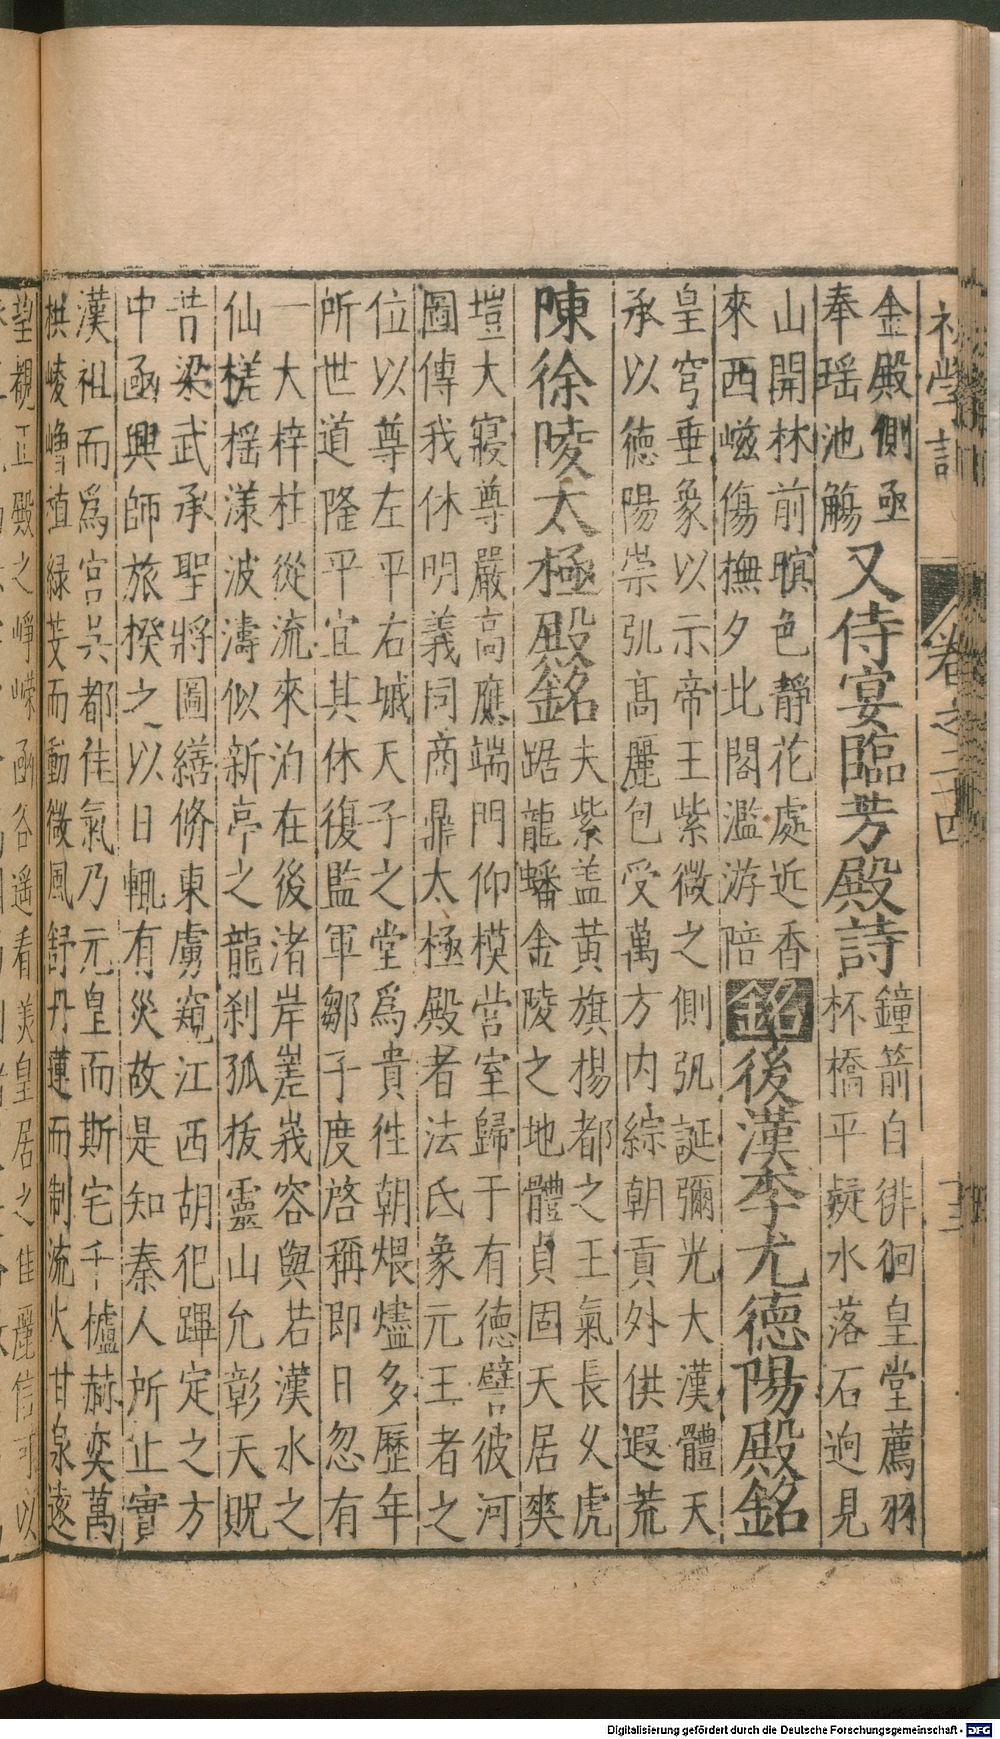 初學記 卷之二十四 十三
金殿側亟
奉瑶池觴
又侍宴臨芳殿詩
鐘箭白徘徊皇堂薦羽
杯橋平疑水落石逈見
山開林前暝色靜花處近香
來西嵫傷撫夕比閣濫游陪
銘後漢李尤德陽殿銘
皇穹垂象以示帝王紫微之側弘誕彌光大漢體天
承以德陽崇弘髙麗包受萬方内綜朝貢外供遐荒
陳徐陵太極殿銘
夫紫盖黄旗楊都之王氣長乆虎
踞龍蟠金陵之地體貞固天居爽
塏大寢尊嚴高應端門仰模営室歸于有德譬彼河
圖傳我休明義同商鼎太極殿者法氐象元王者之
位以尊左平右墄天子之堂爲貴徃朝煨燼多歷年
所世道隆平宜其休復監軍鄒子度啓稱即日忽有
一大梓柱從流來泊在後渚岸嵳峩容與若漢水之
仙槎揺漾波濤似新亭之龍刹孤拔靈山允彰天貺
昔梁武承聖將圖繕脩東虜窺江西胡犯蹕定之方
中亟興師旅揆之以日輒有災故是知秦人所止實
漢祖而爲宫呉都佳氣乃元皇而斯宅千櫨赫奕萬
栱崚嶒植緑芰而動微風舒丹蓮而制流火甘泉遠
望觀正殿之崢嶸函谷遥看美皇居之佳麗信可以
Digitalisierung gefördert durch die Deutsche Forschungsgemeinschaft - DFG